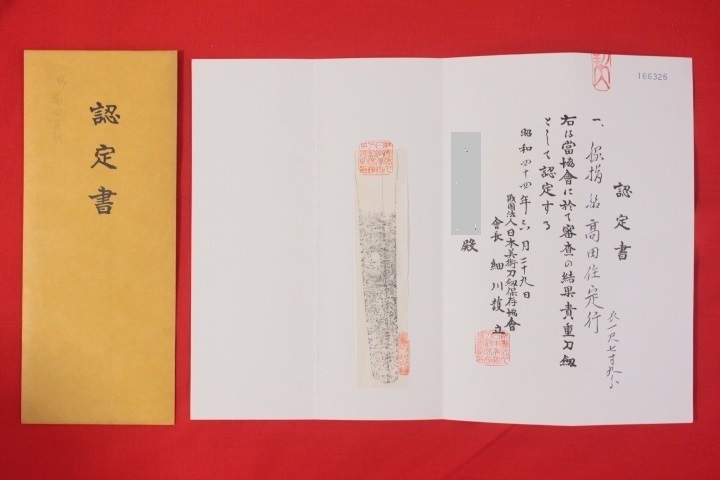 認定書
166326
認定書
一、脇指 銘 高田住定行
長一尺七寸九分
右は當協會に於て審査の結果貴重刀剱
として認定する
昭和四十四年六月二十九日
財團法人日本美術刀剱保存協會
會長 細川護立
殿